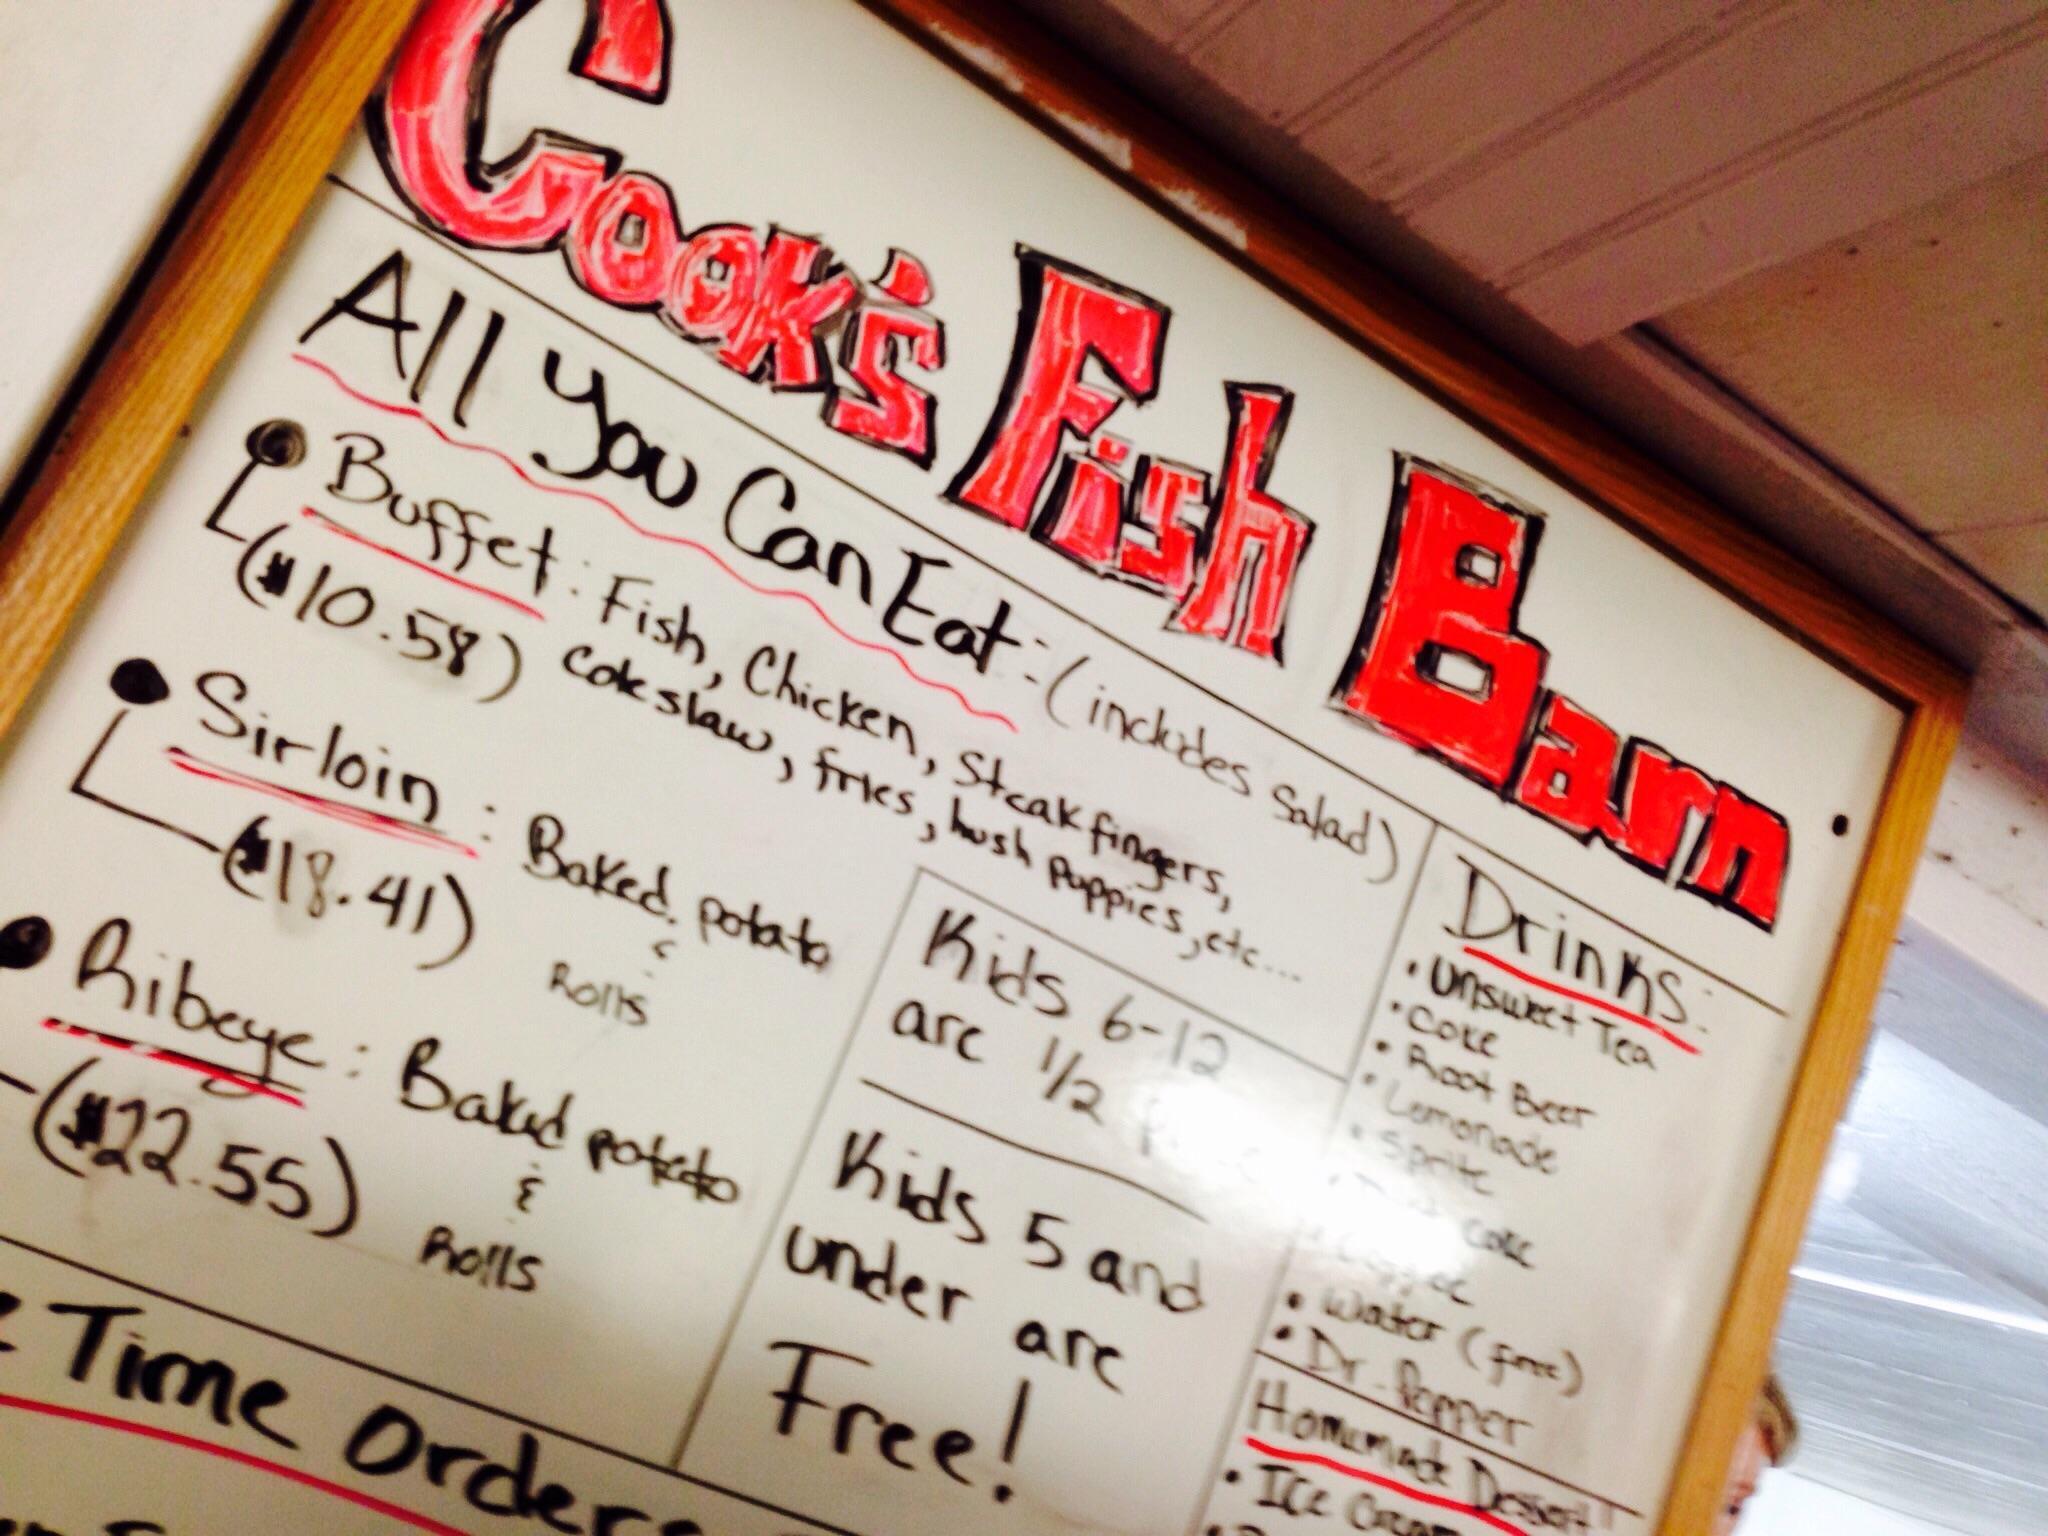 Cook's Fish Barn
All You Can Eat: (includes Salad)
• Buffet: Fish, Chicken, Steakfingers,
($10.58) Coleslaw, fries, hush puppies, etc...
• Sirloin: Baked potato
($18.41) & Rolls
• Ribeye: Baked potato
&
($22.55) Rolls
Kids 6-12
are 1/2
Kids 5 and
under are
Free!
Drinks:
• Unsweet Tea
• Coke
• Root Beer
• Lemonade
• Sprite
Coke
• Water (free)
• Dr. Pepper
Homemade Dessert
• Ice Cream
Time Orders